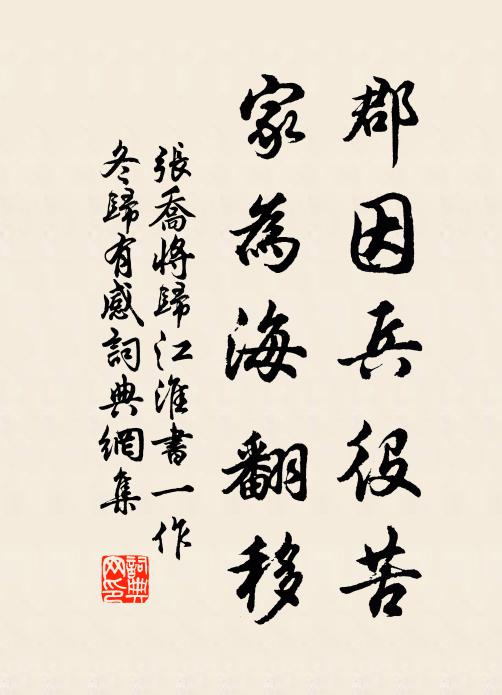 郡因兵役苦
家為海翻移
張喬將歸江淮書一作
冬歸有感詞典網集
詞典网印